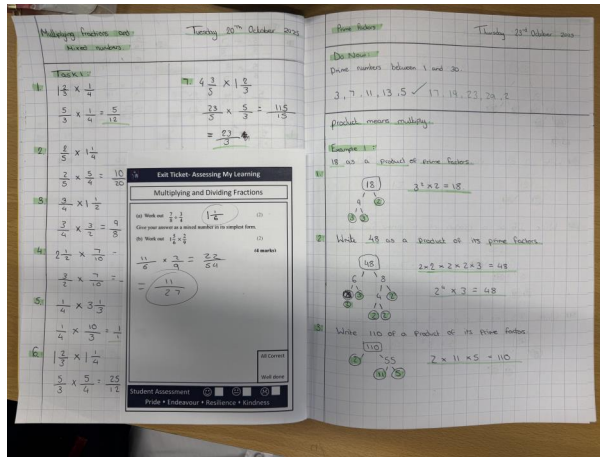 Multiplying fractions and
Mixed numbers.
Tuesday 20th October
Task:
1. 1 2/3 × 1/4
5/3 × 1/4 = 5/12
2. 2/5 × 1 1/4
2/5 × 5/4 = 10/20
3. 3/4 × 1 1/2
3/4 × 3/2 = 9/8
4. 2 1/2 × 7/10
5. 1/4 × 3 1/3
1/4 × 10/3 =
6. 1 2/3 × 1 1/4
5/3 × 5/4 = 25/12
7. 4 3/5 × 1 2/3
23/5 × 5/3 = 115/15
= 23/3
Exit Ticket- Assessing My Learning
Multiplying and Dividing Fractions
(a) Work out
1 1/6
(2)
Give your answer as a mixed number in its simplest form.
(b) Work out
(2)
(4 marks)
11/6 × 2/9 = 22/54
= 11/27
All Correct
Well done
Student Assessment
Pride • Endeavour • Resilience • Kindness
Prime Factors
Thursday
October
Do Now:
Prime numbers between 1 and 30.
3, 7, 11, 13, 5 ✓ 17, 19, 23, 29, 2
product means multiply.
Example 1:
18 as a product of prime factors.
1.
18
9 2
3 3
3² × 2 = 18
2. Write 48 as a product of its prime factors.
48
6 8
4 2
2 2
2 × 2 × 2 × 2 × 3 = 48
2⁴ × 3 = 48
3. Write 110 of a product of its prime factors
110
2 55
11 5
2 × 11 × 5 = 110